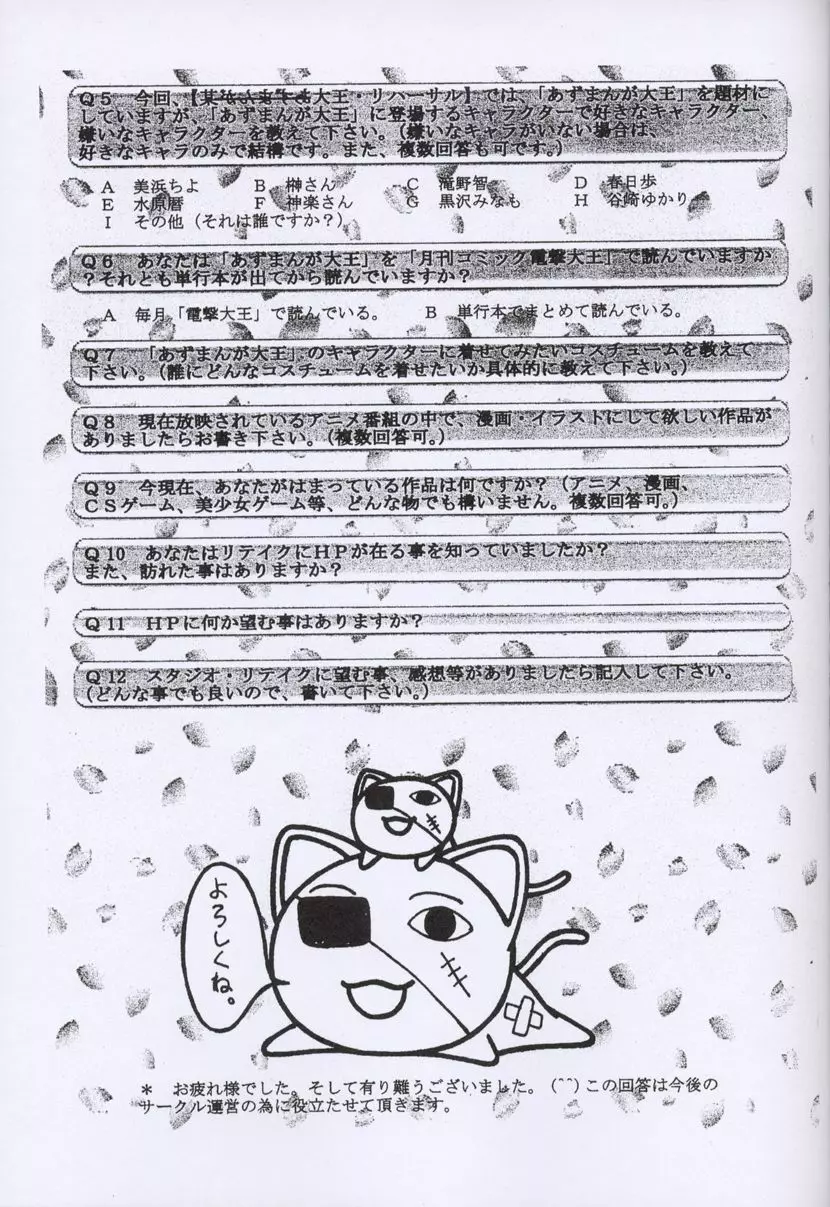 Q5 今回、【某 大王・リハーサル】では、「あずまんが大王」を題材に
していますが、「あずまんが大王」に登場するキャラクターで好きなキャラクター、
嫌いなキャラクターを教えて下さい。(嫌いなキャラがいない場合は、
好きなキャラのみで結構です。また、複数回答も可です。)
A 美浜ちよ B 榊さん C 滝野智 D 春日歩
E 水原暦 F 神楽さん G 黒沢みなも H 谷崎ゆかり
I その他(それは誰ですか?)
Q6 あなたは「あずまんが大王」を「月刊コミック電撃大王」で読んでいますか
?それとも単行本が出てから読んでいますか?
A 毎月「電撃大王」で読んでいる。 B 単行本でまとめて読んでいる。
Q7 「あずまんが大王」のキャラクターに着せてみたいコスチュームを教えて
下さい。(誰にどんなコスチュームを着せたいか具体的に教えて下さい。)
Q8 現在放映されているアニメ番組の中で、漫画・イラストにして欲しい作品が
ありましたらお書き下さい。(複数回答可。)
Q9 今現在、あなたがはまっている作品は何ですか?(アニメ、漫画、
CSゲーム、美少女ゲーム等、どんな物でも構いません。複数回答可。)
Q10 あなたはリテイクにHPが在る事を知っていましたか?
また、訪れた事はありますか?
Q11 HPに何か望む事はありますか?
Q12 スタジオ・リテイクに望む事、感想等がありましたら記入して下さい。
(どんな事でも良いので、書いて下さい。)
よろしくね。
* お疲れ様でした。そして有り難うございました。(^^)この回答は今後の
サークル運営の為に役立たせて頂きます。